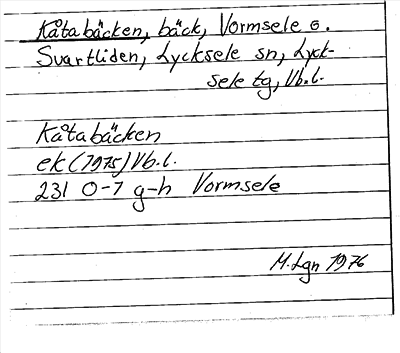 Kåtabäcken, bäck, Vormsele o.
Svartliden, Lycksele sn, Lyck-
sele tg, Vb.l.
Kåtabäcken
ek (1975) Vb.l.
231 0-1 g-h Vormsele
M.Lgn 1976